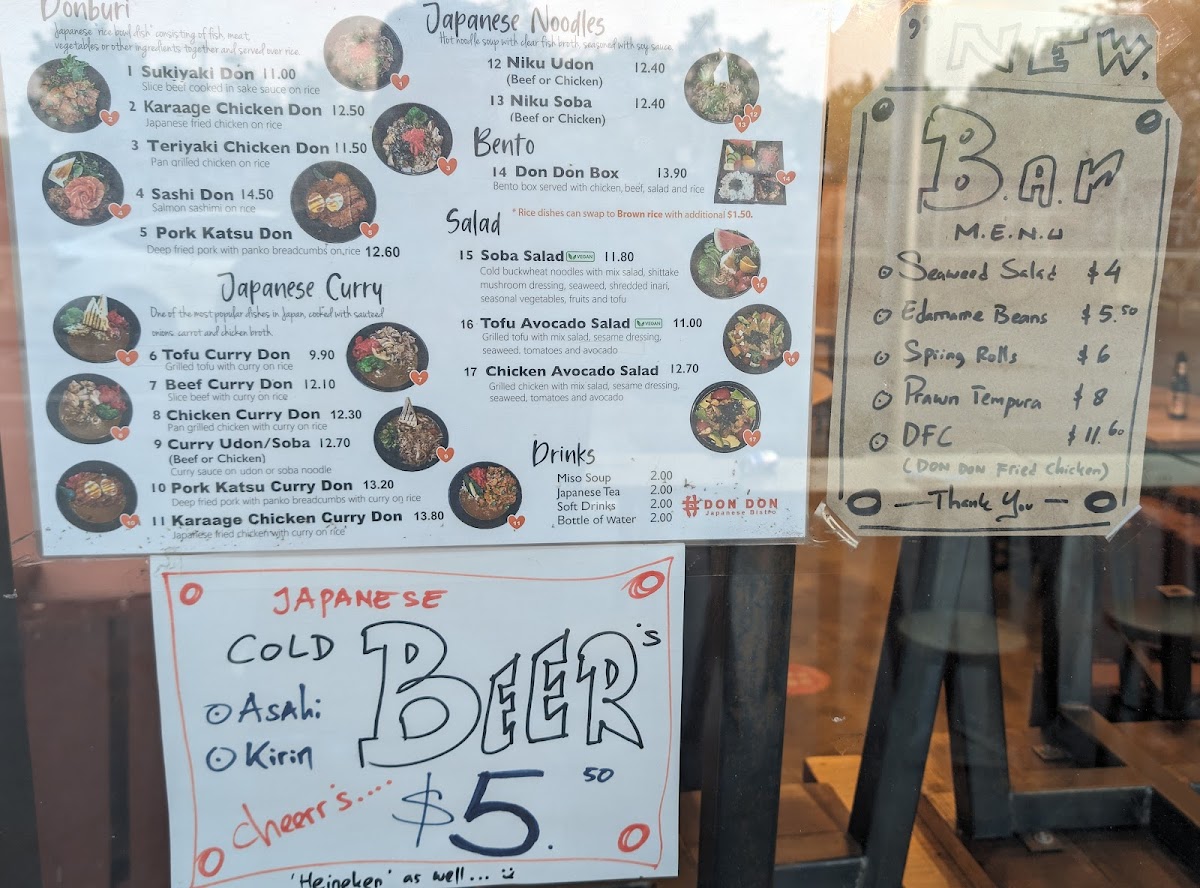 Donburi
Japanese "rice bowl dish" consisting of fish, meat,
vegetables or other ingredients together and served over rice.
1 Sukiyaki Don 11.00
Slice beef cooked in sake sauce on rice
2 Karaage Chicken Don 12.50
Japanese fried chicken on rice
3 Teriyaki Chicken Don 11.50
Pan grilled chicken on rice
4 Sashi Don 14.50
Salmon sashimi on rice
5 Pork Katsu Don
Deep fried pork with panko breadcumbs on rice 12.60
Japanese Curry
One of the most popular dishes in Japan, cooked with sauteed
onions, carrot and chicken broth.
6 Tofu Curry Don 9.90
Grilled tofu with curry on rice
7 Beef Curry Don 12.10
Slice beef with curry on rice
8 Chicken Curry Don 12.30
Pan grilled chicken with curry on rice
9 Curry Udon/Soba 12.70
(Beef or Chicken)
Curry sauce on udon or soba noodle
10 Pork Katsu Curry Don 13.20
Deep fried pork with panko breadcumbs with curry on rice
11 Karaage Chicken Curry Don 13.80
Japanese fried chicken with curry on rice
Japanese Noodles
Hot noodle soup with clear fish broth seasoned with soy sauce
12 Niku Udon 12.40
(Beef or Chicken)
13 Niku Soba 12.40
(Beef or Chicken)
Bento
14 Don Don Box 13.90
Bento box served with chicken, beef, salad and rice
* Rice dishes can swap to Brown rice with additional $1.50.
Salad
15 Soba Salad VEGAN 11.80
Cold buckwheat noodles with mix salad, shittake
mushroom dressing, seaweed, shredded inari,
seasonal vegetables, fruits and tofu
16 Tofu Avocado Salad VEGAN 11.00
Grilled tofu with mix salad, sesame dressing,
seaweed, tomatoes and avocado
17 Chicken Avocado Salad 12.70
Grilled chicken with mix salad, sesame dressing,
seaweed, tomatoes and avocado
Drinks
Miso Soup 2.00
Japanese Tea 2.00
Soft Drinks 2.00
Bottle of Water 2.00
DON DON
Japanese Bistro
NEW.
B.a.r
M.E.N.U
Seaweed Salad $4
Edamame Beans $5.50
Spring Rolls $6
Prawn Tempura $8
DFC $11.60
(DON DON Fried Chicken)
— Thank You —
JAPANESE
COLD BEER's
Asahi
Kirin
cheerr's....
$5.50
'Heineken' as well...